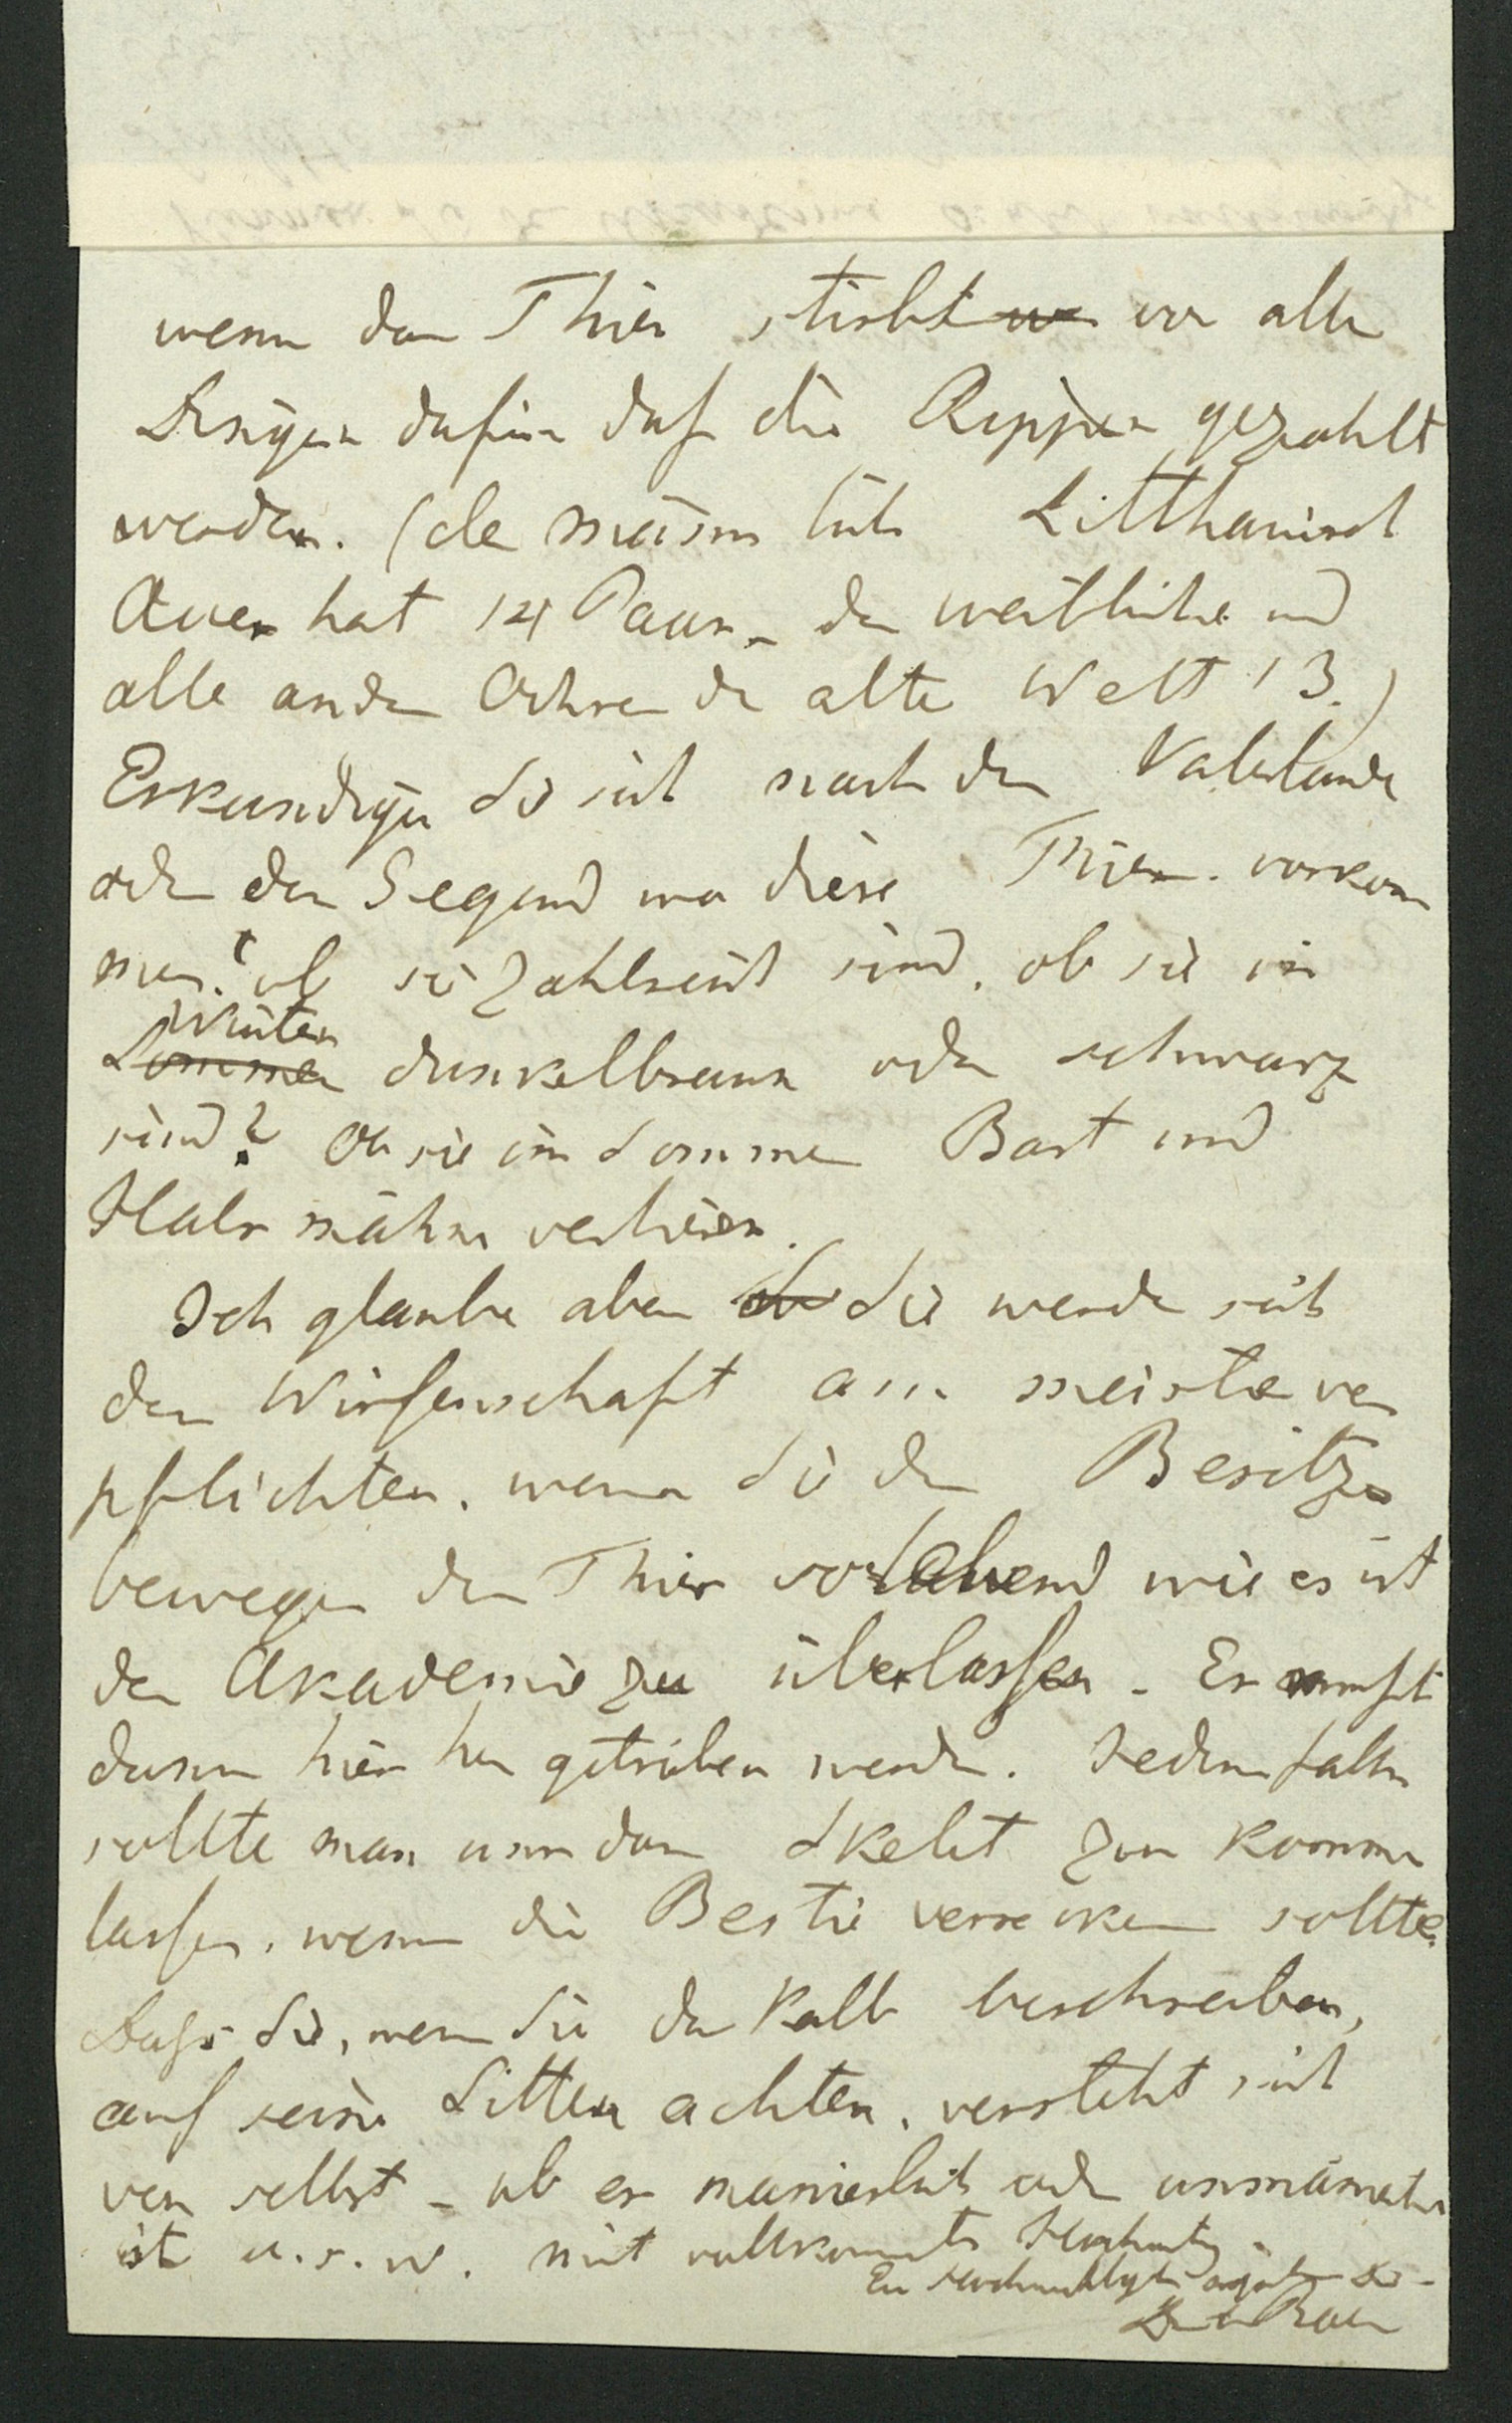 wenn das Thier stirbt we vor allen
Dingen dafür daß die Rippen gezahlt
werden. (der männliche Litthauische
Auer hat 14 Paar – der weibliche und
alle andern Ochsen der alten Welt 13.)
Erkundigen Sie sich nach dem Vaterlande
oder der Gegend wo diese Thiere vorkom
men? ob sie zahlreich sind, ob sie im
Winter
Sommer dunkelbraun oder schwarz
sind? Ob sie im Sommer Bart und
Halsmähne verlieren.
Ich glaube aber Sie werden sich
der Wissenschaft am meisten ver
pflichten, wenn Sie den Besitzer
bewegen das Thier so lebend wie es ist
der Akademie zu überlassen. Es müßte
dann hier her getrieben werden. Jedenfalls
sollte man uns das Skelet zu kommen
lassen, wenn die Bestie verrecken sollte.
Daß Sie, wenn Sie das Kalb beschreiben,
auf seine Sitten achten, versteht sich
von selbst – ob es manierlich oder unmanierlich
ist u.s.w. Mit vollkommenster Hochachtung
Eu Hochwohlgeb